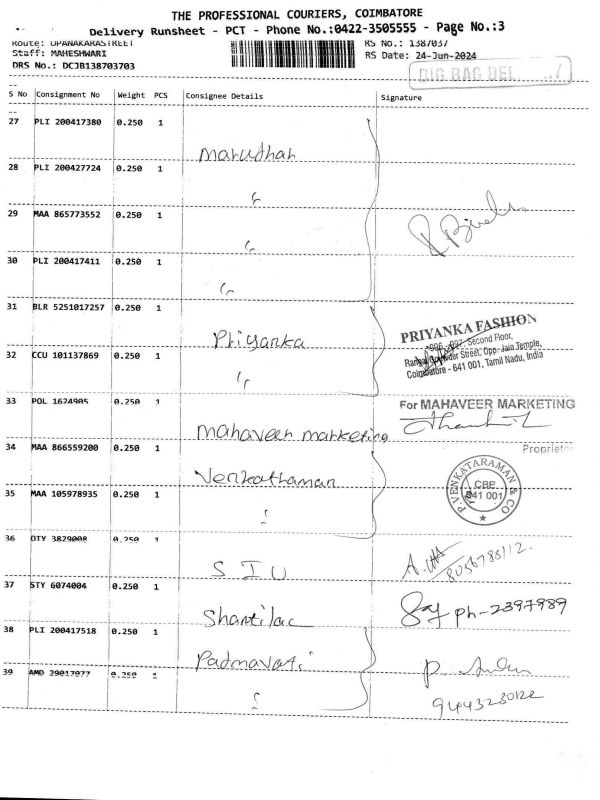 THE PROFESSIONAL COURIERS, COIMBATORE
Delivery Runsheet - PCT - Phone No.:0422-3505555 - Page No.:3
Route: OPANAKARASTREET RS No.: 1387037
Staff: MAHESHWARI RS Date: 24-Jun-2024
DRS No.: DCJB138703703
BIG BAG DEL
S No Consignment No Weight PCS Consignee Details Signature
27 PLI 200417380 0.250 1
Marudhar
28 PLI 200427724 0.250 1
29 MAA 865773552 0.250 1
30 PLI 200417411 0.250 1
31 BLR 5251017257 0.250 1
Priyanka
PRIYANKA FASHION
Second Floor,
Street, Opp. Jain Temple,
Coimbatore - 641 001, Tamil Nadu, India
32 CCU 101137869 0.250 1
33 POL 1624905 0.250 1
Mahaveer marketing
For MAHAVEER MARKETING
Proprietor
34 MAA 866559200 0.250 1
Venkathaman
P. VENKATARAMAN & CO
CBE
641 001
35 MAA 105978935 0.250 1
36 OTY 3829008 0.250 1
S I U
8056788112.
37 STY 6074004 0.250 1
Shantilal
Ph-2397989
38 PLI 200417518 0.250 1
Padmavati
39 AMD 29017077 0.250 1